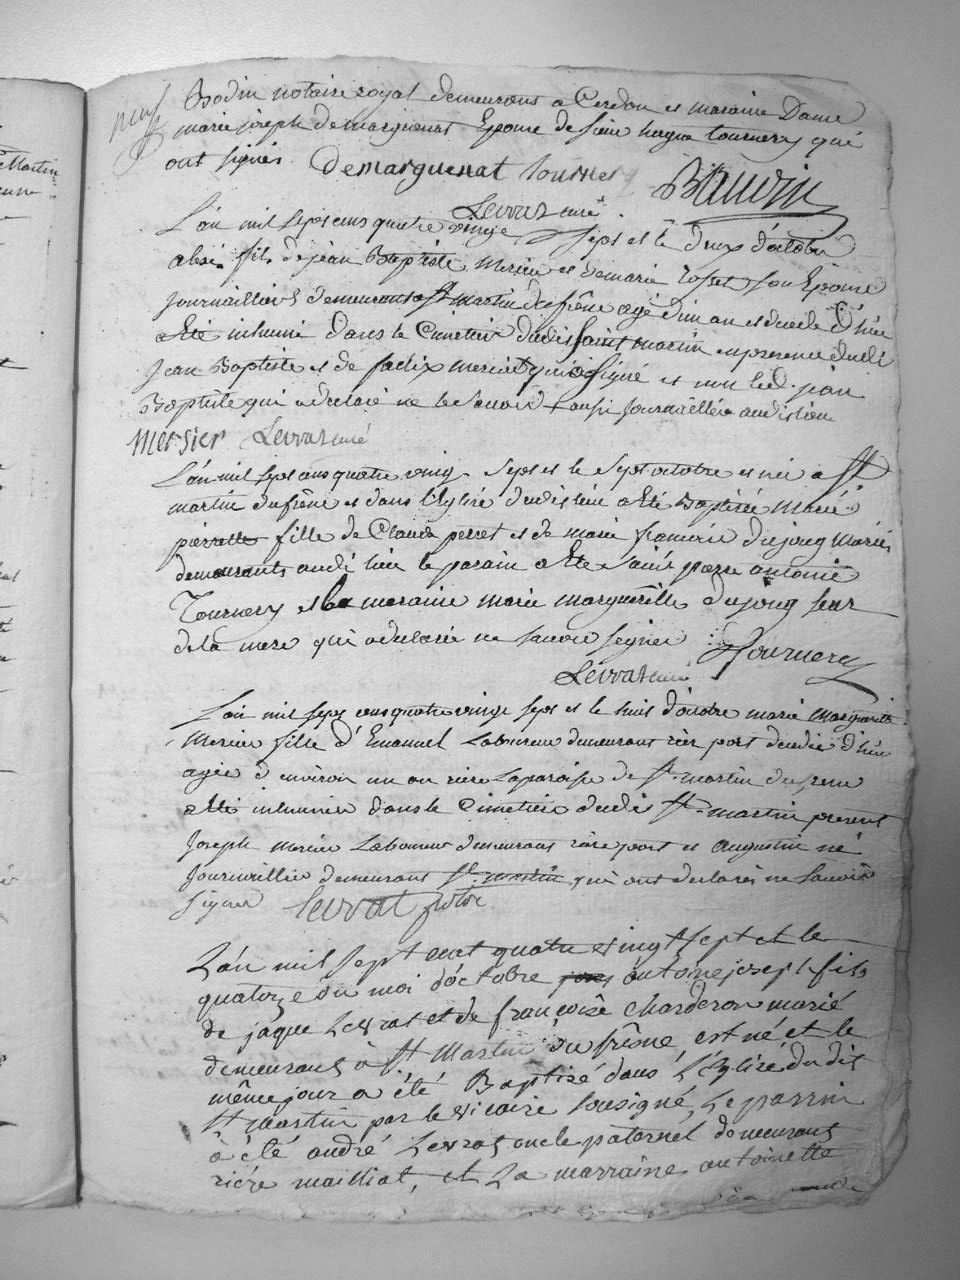 neuf
Bodin notaire royal demeurans a Cerdon et maraine Dame
marie joseph demarguenat Epouse de sieur tournery qui
ont signés. Demarguenat tournery
Levrat curé
L'an mil sept cens quatre vingt sept et le deux d'octobre
fils de jean Baptiste Mercier et demarie rosset son Epouse
journailliers demeurans a St martin du frêne agé d'un an et decedé d'hier
a Eté inhumé dans le Cimetier dudit saint martin en presence dudit
jean Baptiste et de mercier qui a signé et non led. jean
Baptiste qui a declaré ne le savoir aussi journaillier audit lieu
mersier Levrat curé
L'an mil sept cens quatre vingt sept et le sept octobre est née a St
martin du frêne et dans l'Eglise dudit lieu a Eté Baptisée Marie
pierrette fille de Claude perret et de marie francoise dujoug mariés
demeurants audit lieu le parain a Eté pierre antoine
Tournery et la maraine marie margueritte dujoug seur
de la mere qui a declarée ne savoir signer Tournery
Levrat curé
L'an mil sept cens quatre vingt sept et le huit d'octobre marie marguerite
Mercier fille d'Emanuel Laboureur demeurant rière port decedée d'hier
agée d'environ un an rière la paroisse de St martin du frene
a Eté inhumée dans le Cimetier dudit St martin present
joseph mercier Laboureur demeurant riere port et augustin né
journaillier demeurant St martin qui ont declarés ne savoir
signer Levrat
L'an mil sept cent quatre vingt sept et le
quatorze du moi d'octobre antoine joseph fils
de jaque Levrat et de françoise charderon marié
demeurans à St Martin du frêne, est né et le
même jour a été Baptizé dans l'Eglise dudit
St martin par le vicaire sousigné, Le parrin
à été andré Levrat oncle paternel demeurans
rière mailliat, et La marraine antoinette